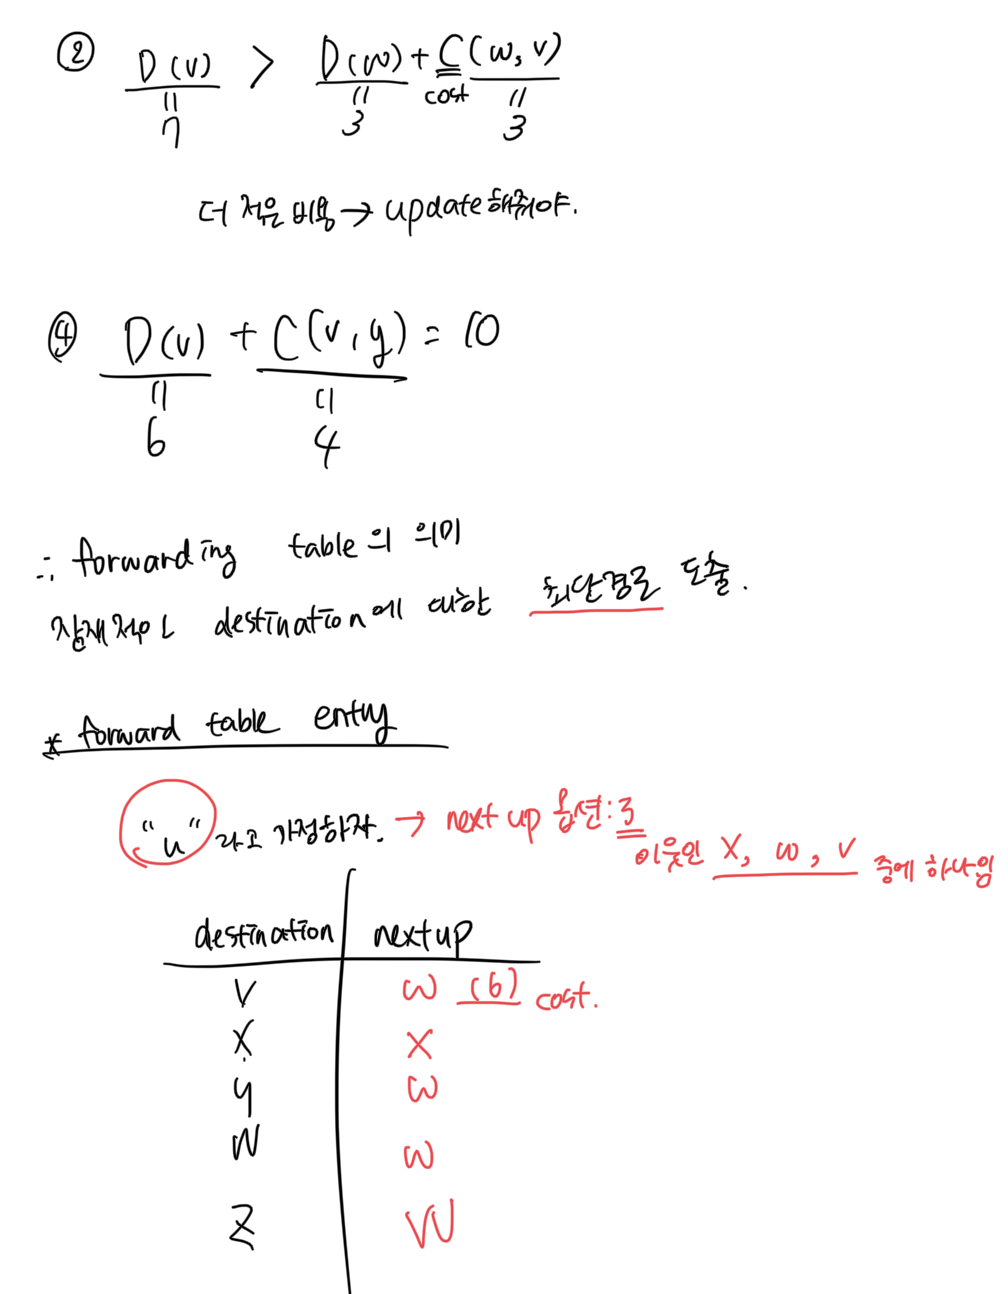 ② D(v) > D(w) + C(w, v)
" " cost "
7 3 3
더 적은 비용 → update 해줘야.
④ D(v) + C(v, y) = 10
" "
6 4
∴ forwarding table의 의미
잠재적인 destination에 대한 최단경로 도출.
* forward table entry
"u" 라고 가정하자. → next up 옵션: 3
이웃인 x, w, v 중에 하나임
destination nextup
v w (6) cost.
x x
y w
w w
z w